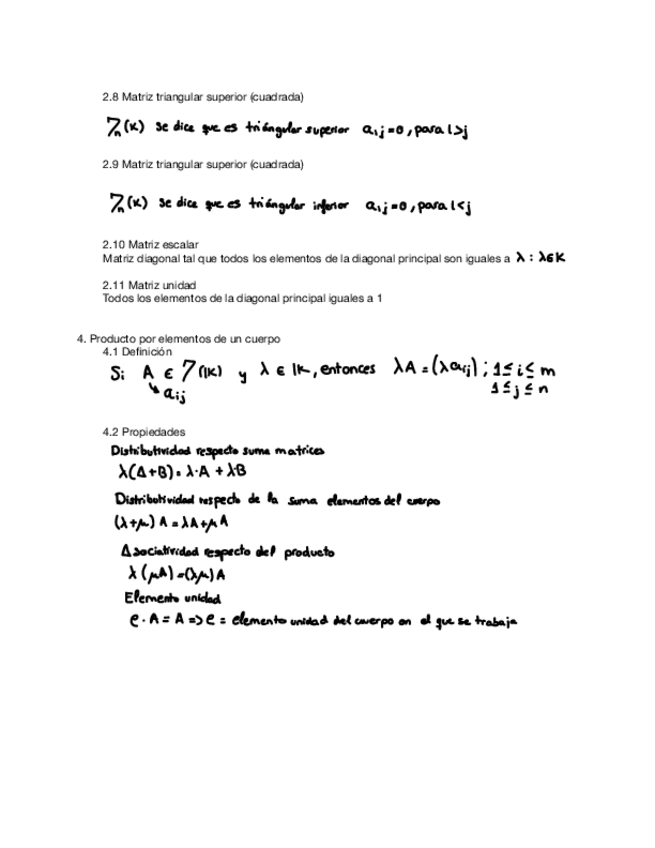 2.8 Matriz triangular superior (cuadrada)
7n(K) se dice que es triángular superior aij=0, para i>j
2.9 Matriz triangular superior (cuadrada)
7n(K) se dice que es triángular inferior aij=0, para i<j
2.10 Matriz escalar
Matriz diagonal tal que todos los elementos de la diagonal principal son iguales a λ : λ∈K
2.11 Matriz unidad
Todos los elementos de la diagonal principal iguales a 1
4. Producto por elementos de un cuerpo
4.1 Definición
Si A ∈ 7(K) y λ ∈ K, entonces λA = (λaij) ; 1≤i≤m
aij 1≤j≤n
4.2 Propiedades
Distributividad respecto suma matrices
λ(A+B) = λ·A + λB
Distributividad respecto de la suma elementos del cuerpo
(λ+μ) A = λA+μA
Asociatividad respecto del producto
λ(μA) = (λμ)A
Elemento unidad
e · A = A => e = elemento unidad del cuerpo en el que se trabaja